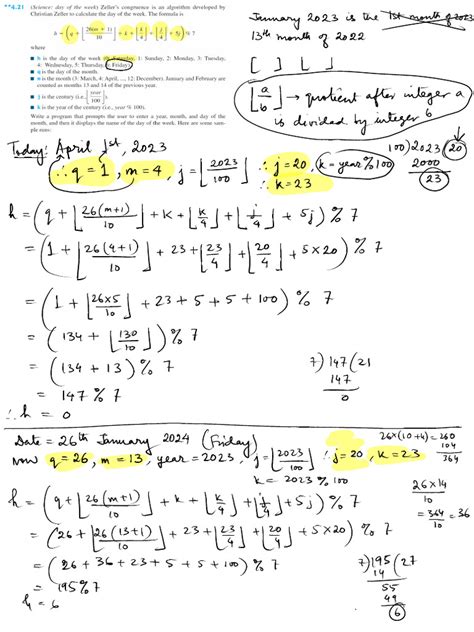 **4.21 (Science: day of the week) Zeller's congruence is an algorithm developed by
Christian Zeller to calculate the day of the week. The formula is
h = (q + ⌊26(m + 1)/10⌋ + k + ⌊k/4⌋ + ⌊j/4⌋ + 5j) % 7
where
■ h is the day of the week (0: Saturday, 1: Sunday, 2: Monday, 3: Tuesday,
4: Wednesday, 5: Thursday, 6: Friday).
■ q is the day of the month.
■ m is the month (3: March, 4: April, ..., 12: December). January and February are
counted as months 13 and 14 of the previous year.
■ j is the century (i.e. ⌊year/100⌋).
■ k is the year of the century (i.e., year % 100).
Write a program that prompts the user to enter a year, month, and day of the
month, and then it displays the name of the day of the week. Here are some sam-
ple runs:
January 2023 is the 1st month of 2023
13th month of 2022
[ ] ⌊ ⌋
⌊a/b⌋ → quotient after integer a
is divided by integer b
Today: April 1st, 2023
∴ q = 1, m = 4, j = ⌊2023/100⌋ ∴ j = 20, k = year % 100
∴ k = 23
100) 2023 (20
2000
23
h = (q + ⌊26(m+1)/10⌋ + k + ⌊k/4⌋ + ⌊j/4⌋ + 5j) % 7
= (1 + ⌊26(4+1)/10⌋ + 23 + ⌊23/4⌋ + ⌊20/4⌋ + 5×20) % 7
= (1 + ⌊26×5/10⌋ + 23 + 5 + 5 + 100) % 7
= (134 + ⌊130/10⌋) % 7
= (134 + 13) % 7
= 147 % 7
∴ h = 0
7) 147 (21
147
0
Date = 26th January 2024 (Friday)
Now q = 26, m = 13, year = 2023, j = ⌊2023/100⌋ ∴ j = 20, k = 23
k = 2023 % 100
26×(10+4) = 260
104
364
h = (q + ⌊26(m+1)/10⌋ + k + ⌊k/4⌋ + ⌊j/4⌋ + 5j) % 7
= (26 + ⌊26(13+1)/10⌋ + 23 + ⌊23/4⌋ + ⌊20/4⌋ + 5×20) % 7
= (26 + 36 + 23 + 5 + 5 + 100) % 7
= 195 % 7
h = 6
26×14/10
= 364/10 = 36
7) 195 (27
14
55
49
6